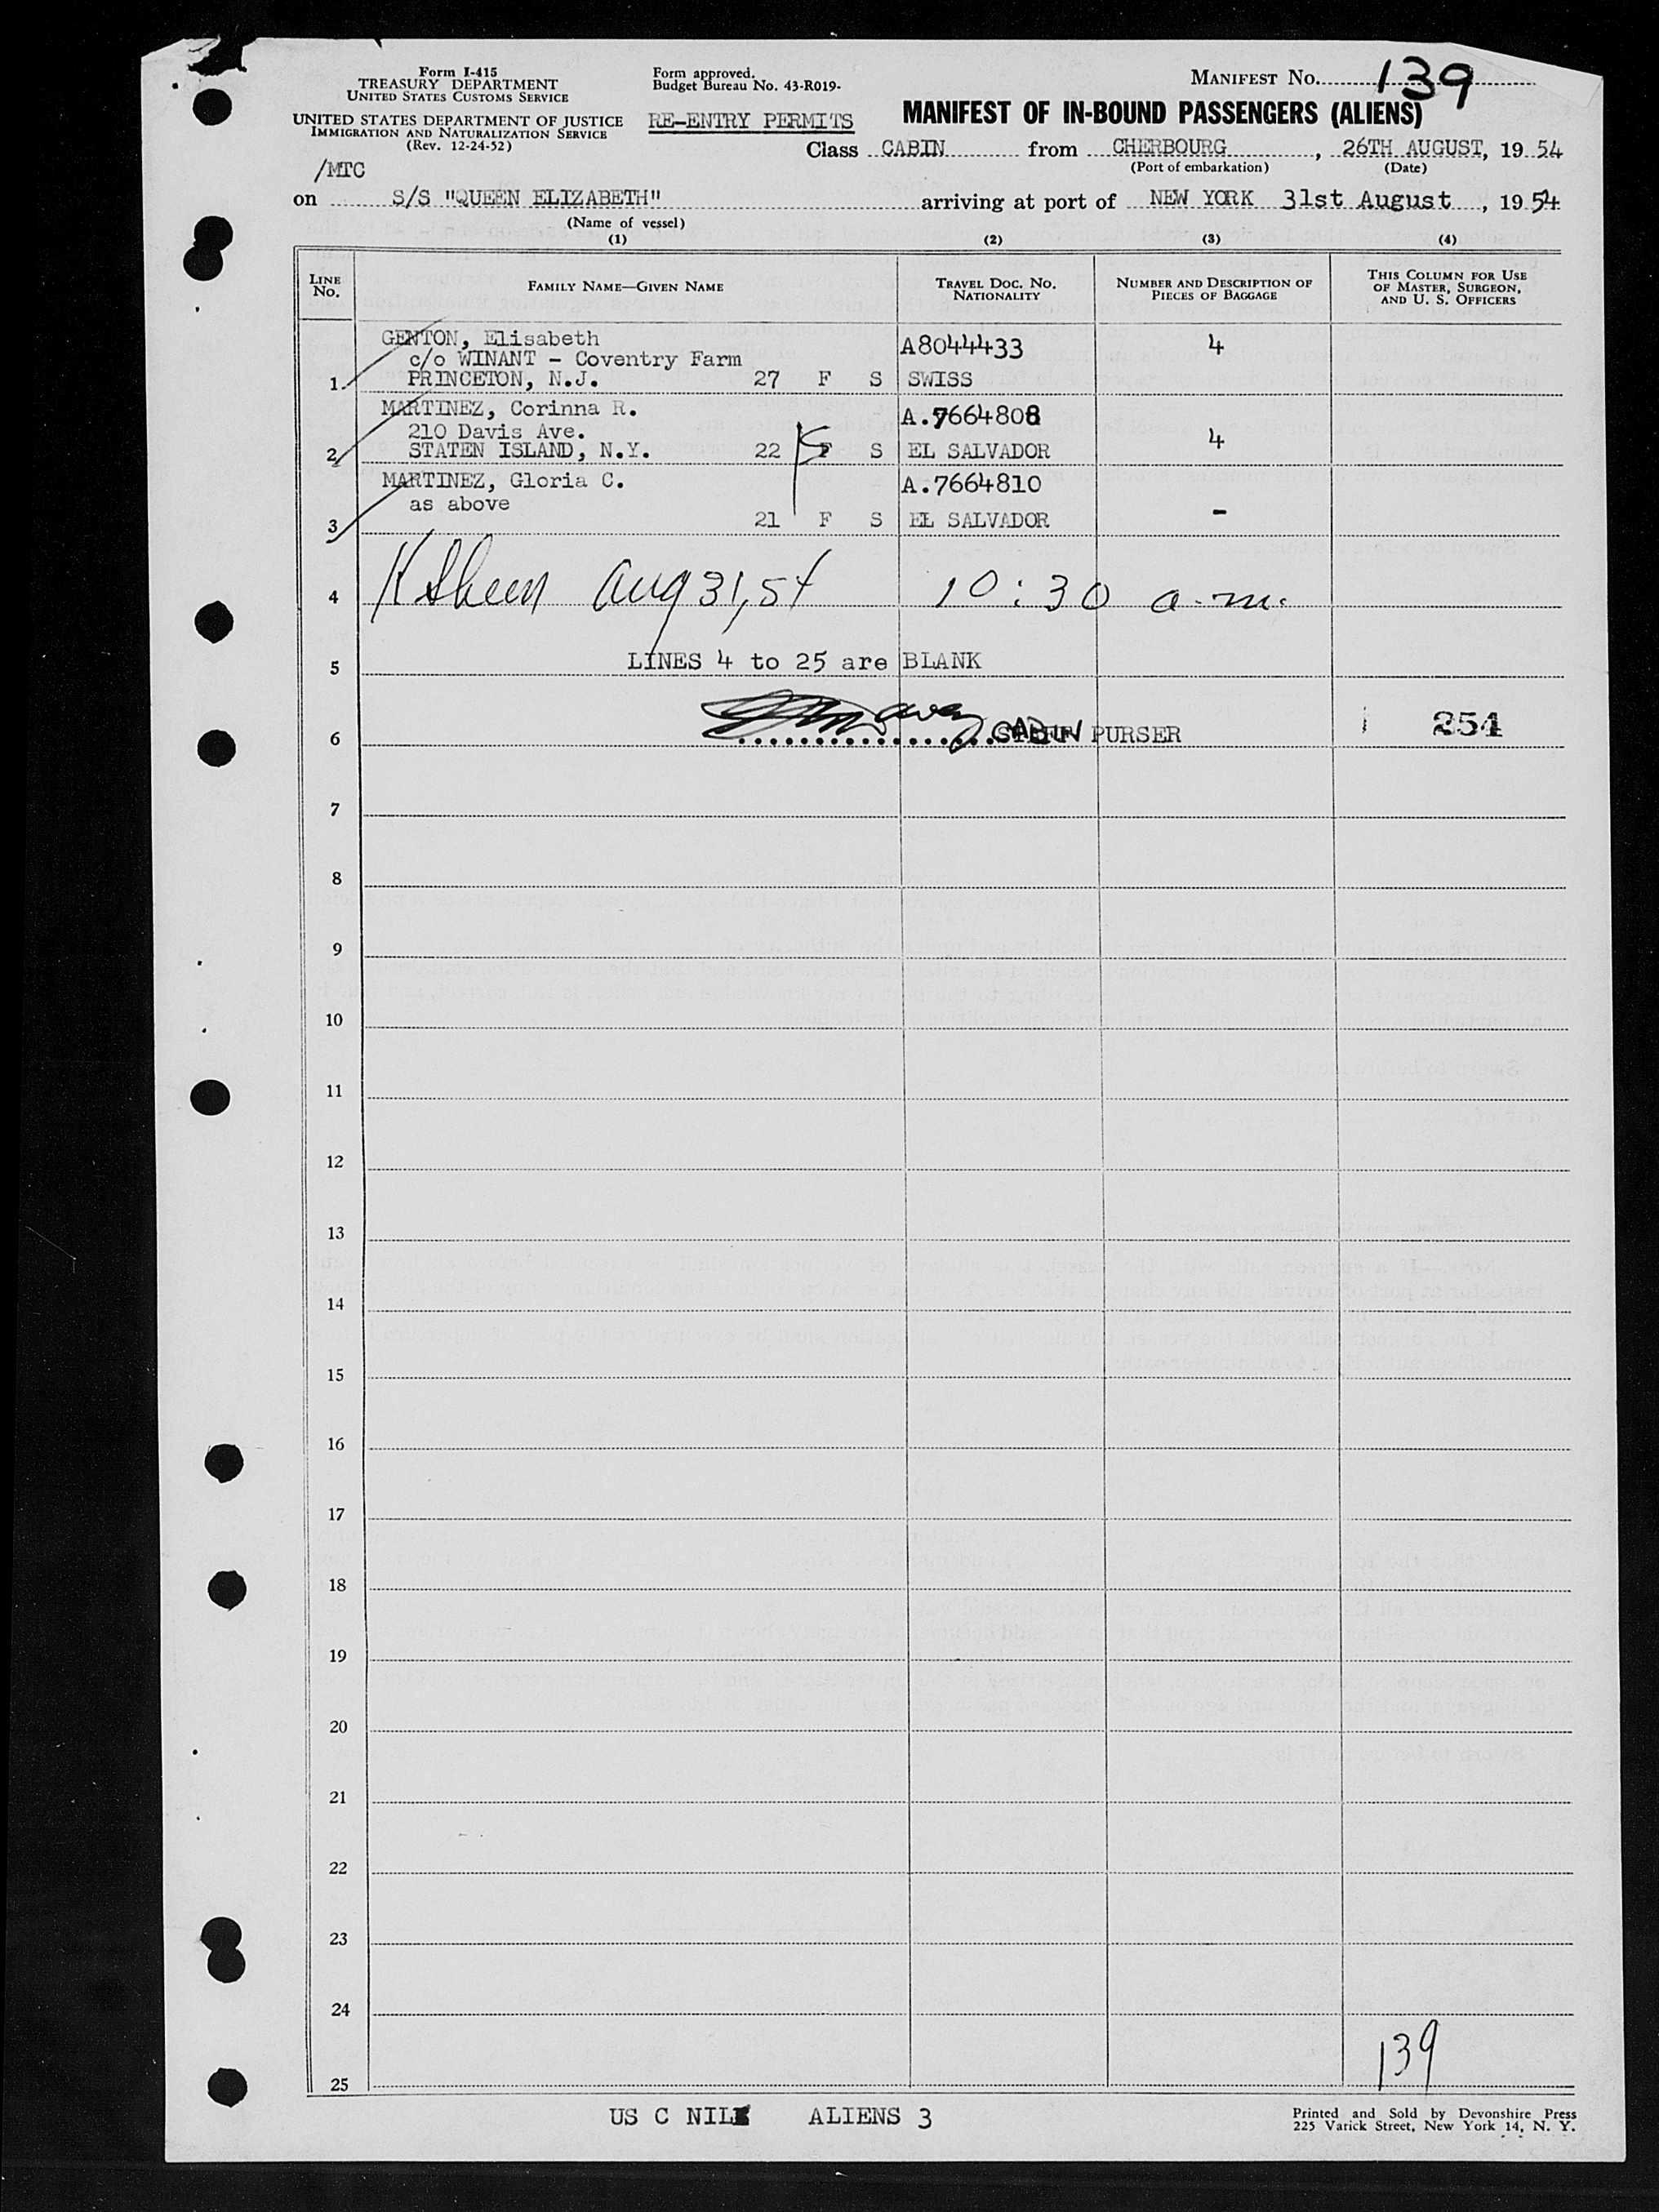 Form I-415
TREASURY DEPARTMENT
UNITED STATES CUSTOMS SERVICE
UNITED STATES DEPARTMENT OF JUSTICE
IMMIGRATION AND NATURALIZATION SERVICE
(Rev. 12-24-52)
/MTC
Form approved.
Budget Bureau No. 43-R019-
RE-ENTRY PERMITS
MANIFEST No. 139
MANIFEST OF IN-BOUND PASSENGERS (ALIENS)
Class CABIN from CHERBOURG, 26TH AUGUST, 19 54
(Port of embarkation) (Date)
on S/S "QUEEN ELIZABETH" arriving at port of NEW YORK 31st August, 19 54
(Name of vessel)
(1) (2) (3) (4)
LINE No. FAMILY NAME—GIVEN NAME TRAVEL DOC. NO. NATIONALITY NUMBER AND DESCRIPTION OF PIECES OF BAGGAGE THIS COLUMN FOR USE OF MASTER, SURGEON, AND U. S. OFFICERS
GENTON, Elisabeth A8044433 4
c/o WINANT - Coventry Farm
1 PRINCETON, N.J. 27 F S SWISS
MARTINEZ, Corinna R. A.7664808
210 Davis Ave. 4
2 STATEN ISLAND, N.Y. 22 F S EL SALVADOR
MARTINEZ, Gloria C. A.7664810
as above
3 21 F S EL SALVADOR -
4 Aug 31, 54 10:30 a.m.
5 LINES 4 to 25 are BLANK
6 CABIN PURSER 254
7
8
9
10
11
12
13
14
15
16
17
18
19
20
21
22
23
24
139
25
US C NIL ALIENS 3
Printed and Sold by Devonshire Press
225 Varick Street, New York 14, N. Y.